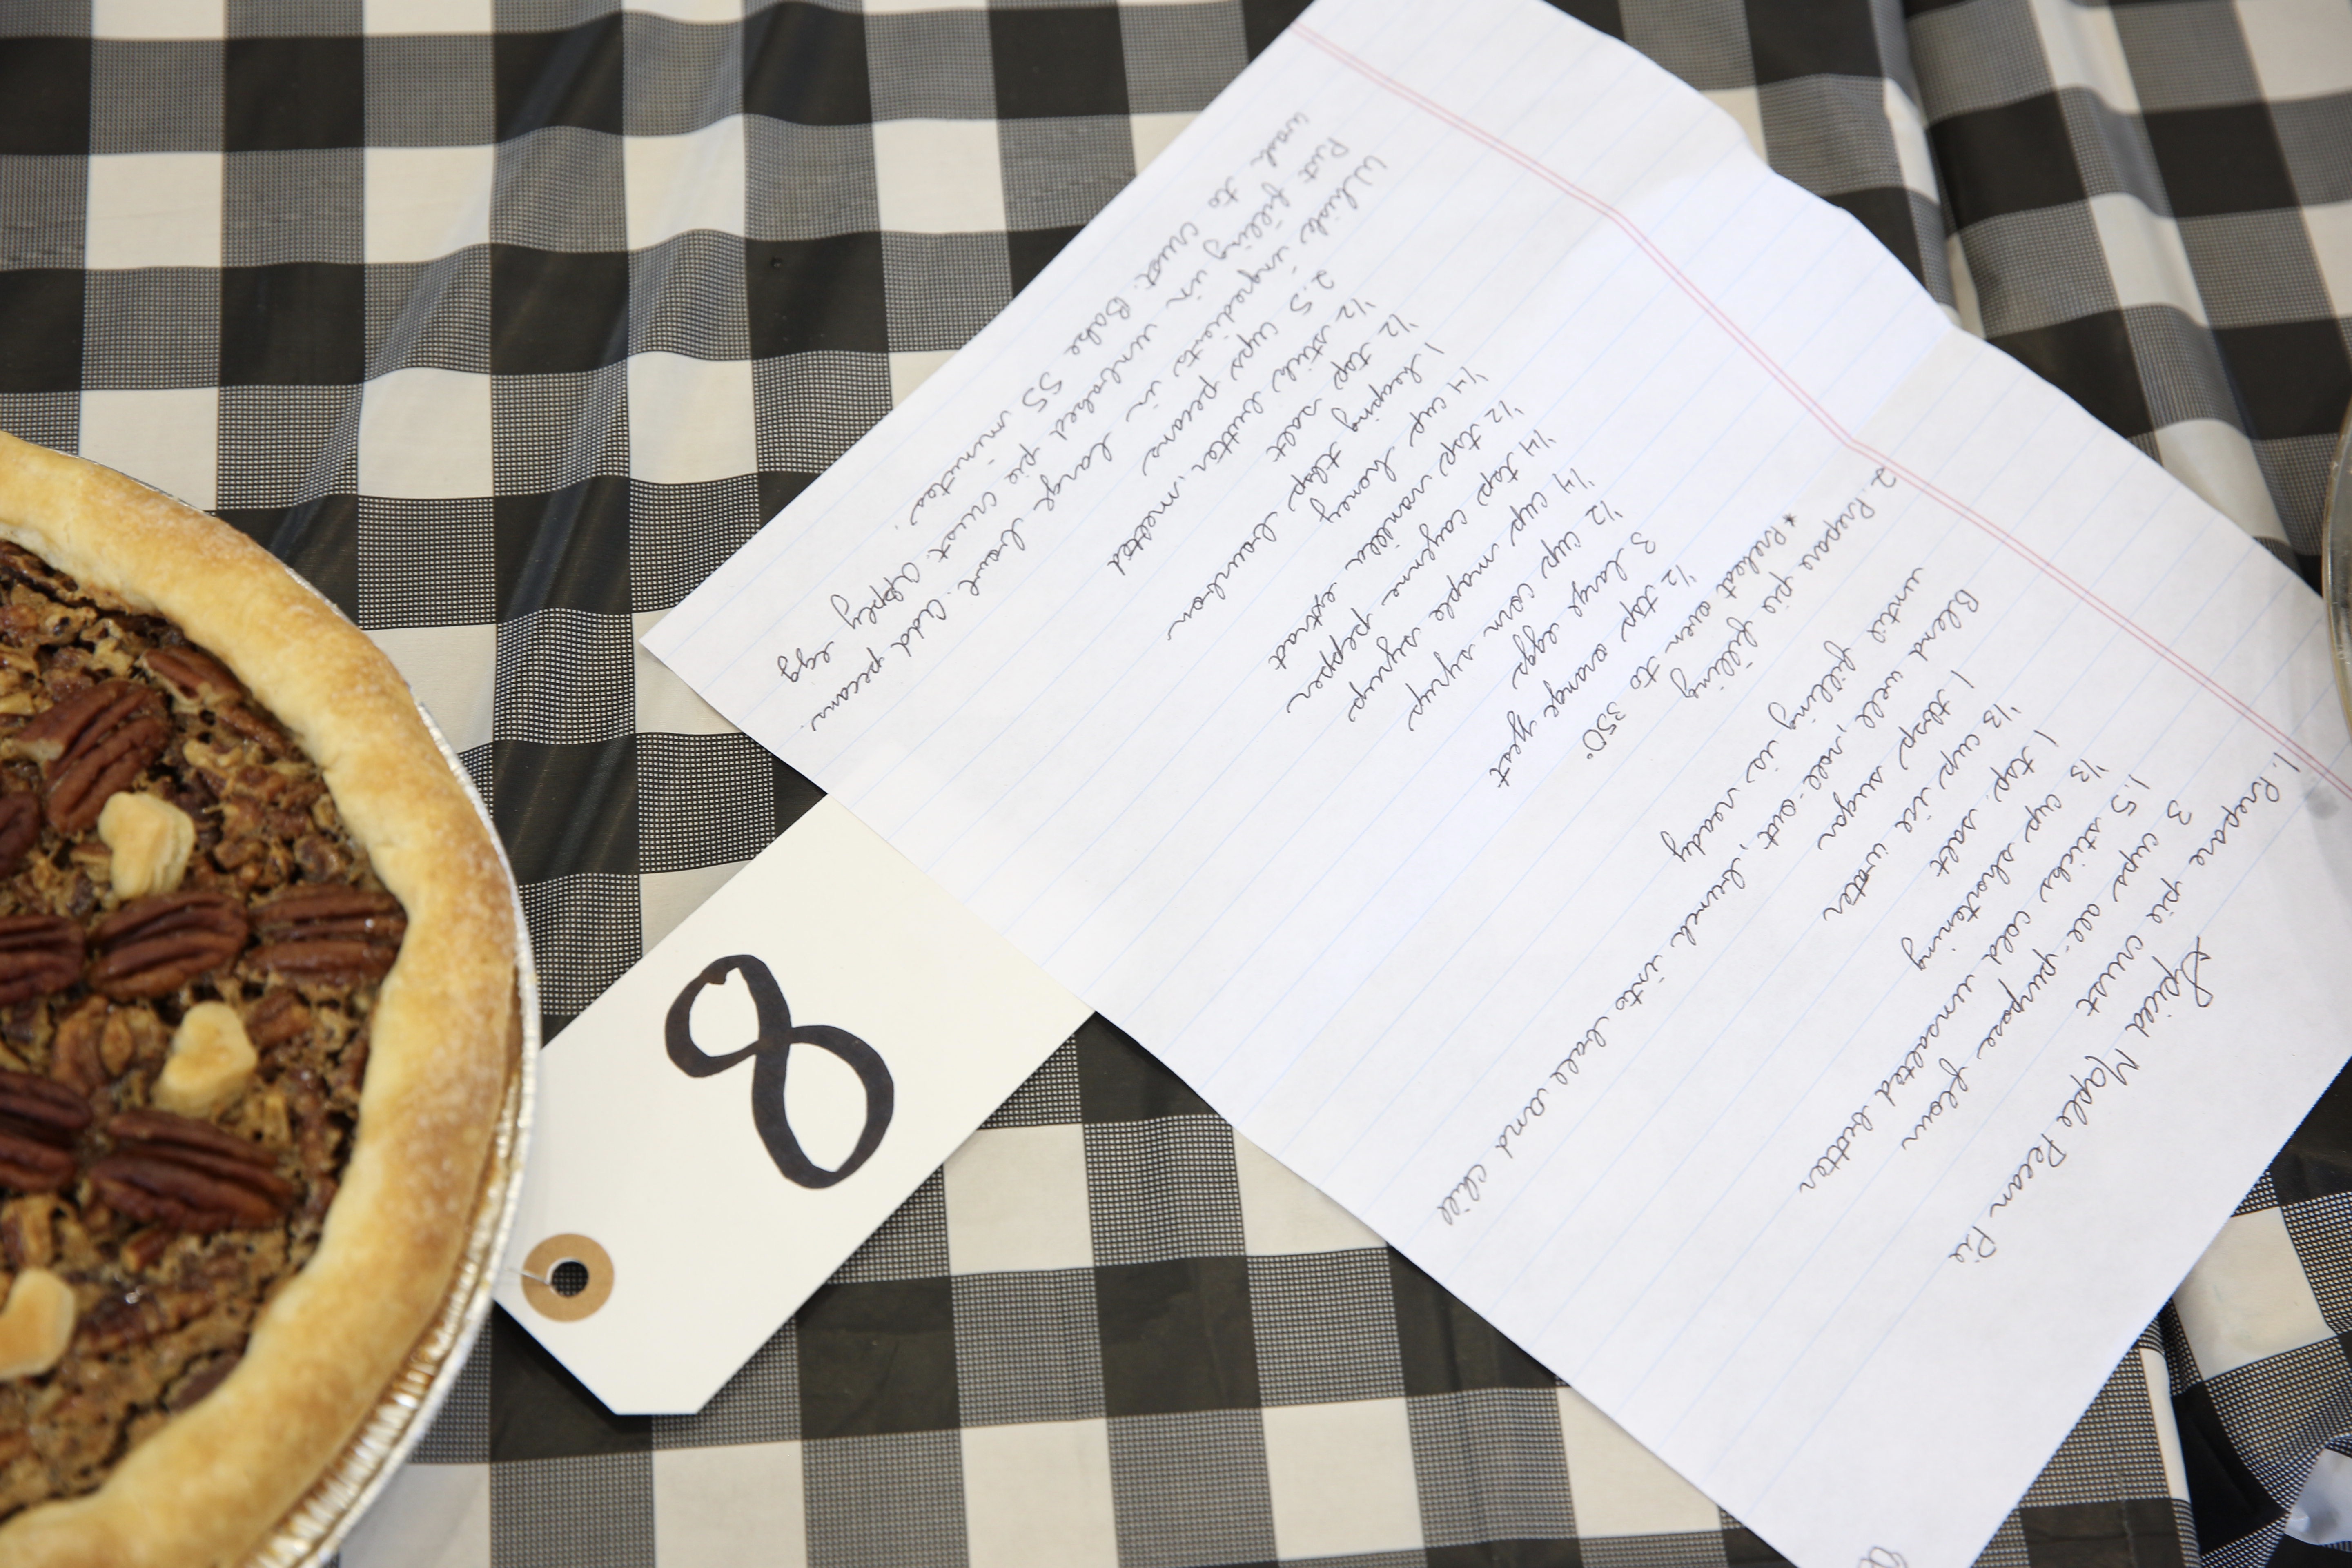 Spiced Maple Pecan Pie
1. Prepare pie crust
3 cups all-purpose flour
1.5 sticks cold unsalted butter
1/3 cup shortening
1 tsp salt
1/3 cup ice water
1 tbsp sugar
Blend well, roll-out, bunch into ball and chill
until filling is ready
2. Prepare pie filling
* Preheat oven to 350°
1/2 tsp orange yest
3 large eggs
1/2 cup corn syrup
1/4 cup maple syrup
1/4 tsp cayenne pepper
1/2 tsp vanilla extract
1/4 cup honey
1 heaping tbsp bourbon
1/2 tsp salt
1/2 stick butter, melted
2.5 cups pecans
Whisk ingredients in large bowl. Add pecans.
Put filling in unbaked pie crust. Apply egg
wash to crust. Bake 55 minutes.
8